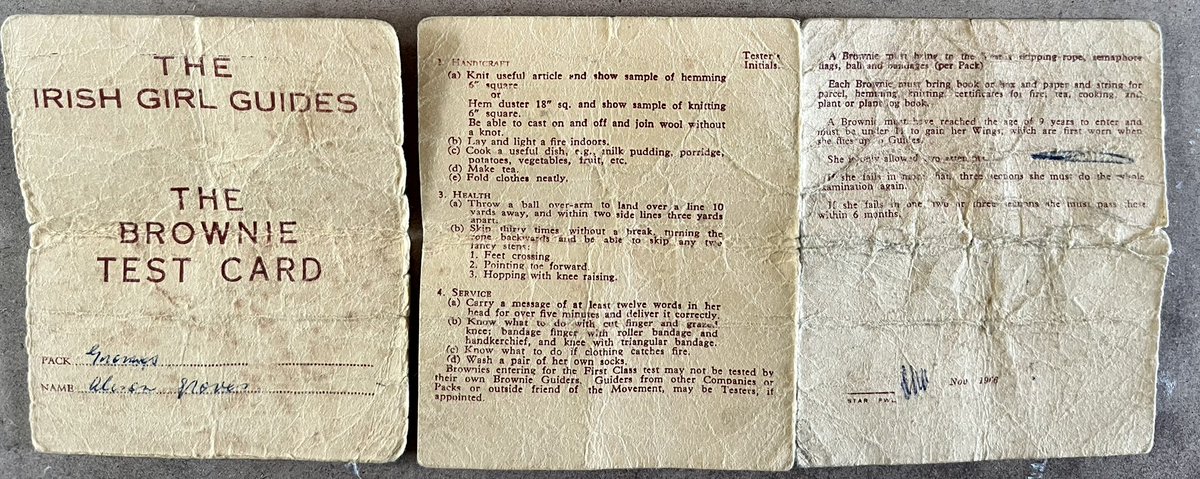 THE
IRISH GIRL GUIDES
THE
BROWNIE
TEST CARD
PACK Gnomes
NAME Alison Groves
Tester's
Initials.
HANDICRAFT
(a) Knit useful article and show sample of hemming
6" square
or
Hem duster 18" sq. and show sample of knitting
6" square.
Be able to cast on and off and join wool without
a knot.
(b) Lay and light a fire indoors.
(c) Cook a useful dish, e.g., milk pudding, porridge,
potatoes, vegetables, fruit, etc.
(d) Make tea.
(e) Fold clothes neatly.
3. HEALTH
(a) Throw a ball over-arm to land over a line 10
yards away, and within two side lines three yards
apart.
(b) Skip thirty times without a break, turning the
rope backwards and be able to skip any two
fancy steps:
1. Feet crossing
2. Pointing toe forward
3. Hopping with knee raising.
4. SERVICE
(a) Carry a message of at least twelve words in her
head for over five minutes and deliver it correctly.
(b) Know what to do with cut finger and grazed
knee; bandage finger with roller bandage and
handkerchief, and knee with triangular bandage.
(c) Know what to do if clothing catches fire.
(d) Wash a pair of her own socks.
Brownies entering for the First Class test may not be tested by
their own Brownie Guiders. Guiders from other Companies or
Packs or outside friend of the Movement, may be Testers, if
appointed.
A Brownie must bring to the skipping-rope, semaphore
flags, ball and bandages (per Pack)
Each Brownie must bring book or box and paper and string for
parcel, hemming, knitting, certificates for fire, tea, cooking, and
plant or plant log book.
A Brownie must have reached the age of 9 years to enter and
must be under 11 to gain her Wings, which are first worn when
she flies up to Guides.
She is only allowed two attempts.
If she fails in more than three sections she must do the whole
examination again.
If she fails in one, two or three sections she must pass these
within 6 months.
Nov
STAR